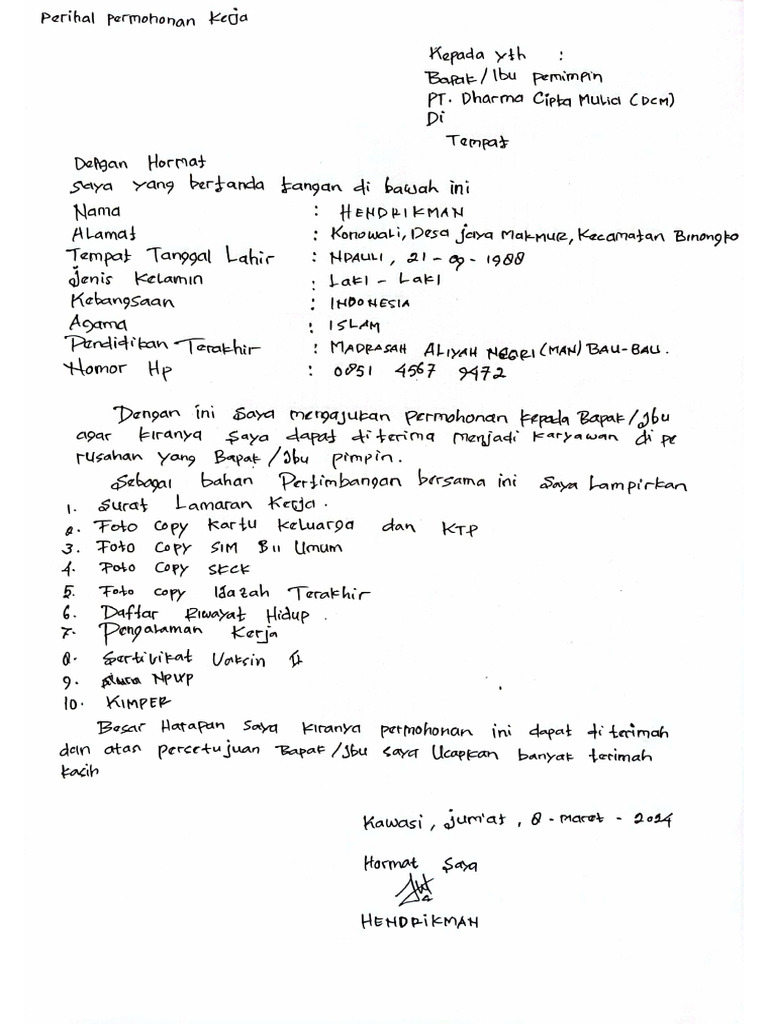 Perihal permohonan Kerja
Kepada yth :
Bapak/Ibu pemimpin
PT. Dharma Cipta Mulia (DCM)
Di
Tempat
Dengan Hormat
Saya yang bertanda tangan di bawah ini
Nama : HENDRIKMAN
ALamat : Konowali, Desa jaya Makmur, Kecamatan Binongko
Tempat Tanggal Lahir : NDAULI, 21-09-1988
Jenis Kelamin : Laki - Laki
Kebangsaan : INDONESIA
Agama : ISLAM
Pendidikan Terakhir : MADRASAH ALIYAH NEGRI (MAN) BAU-BAU.
Nomor Hp : 0851 4567 9472
Dengan ini Saya mengajukan permohonan kepada Bapak/Ibu
agar kiranya Saya dapat di terima menjadi karyawan di pe
rusahan yang Bapak/Ibu pimpin.
Sebagai bahan Pertimbangan bersama ini Saya Lampirkan
1. Surat Lamaran Kerja.
2. Foto copy Kartu keluarga dan KTP
3. Foto Copy SIM BII Umum
4. Foto Copy SKCK
5. Foto copy Ijazah Terakhir
6. Daftar Riwayat Hidup.
7. Pengalaman Kerja
8. Sertivikat Vaksin II
9. NPWP
10. KIMPER
Besar Harapan Saya kiranya permohonan ini dapat di terimah
dan atas percetujuan Bapak/Ibu saya Ucapkan banyak terimah
kasih
Kawasi, Jum'at, 8 - Maret - 2024
Hormat Saya
HENDRIKMAN